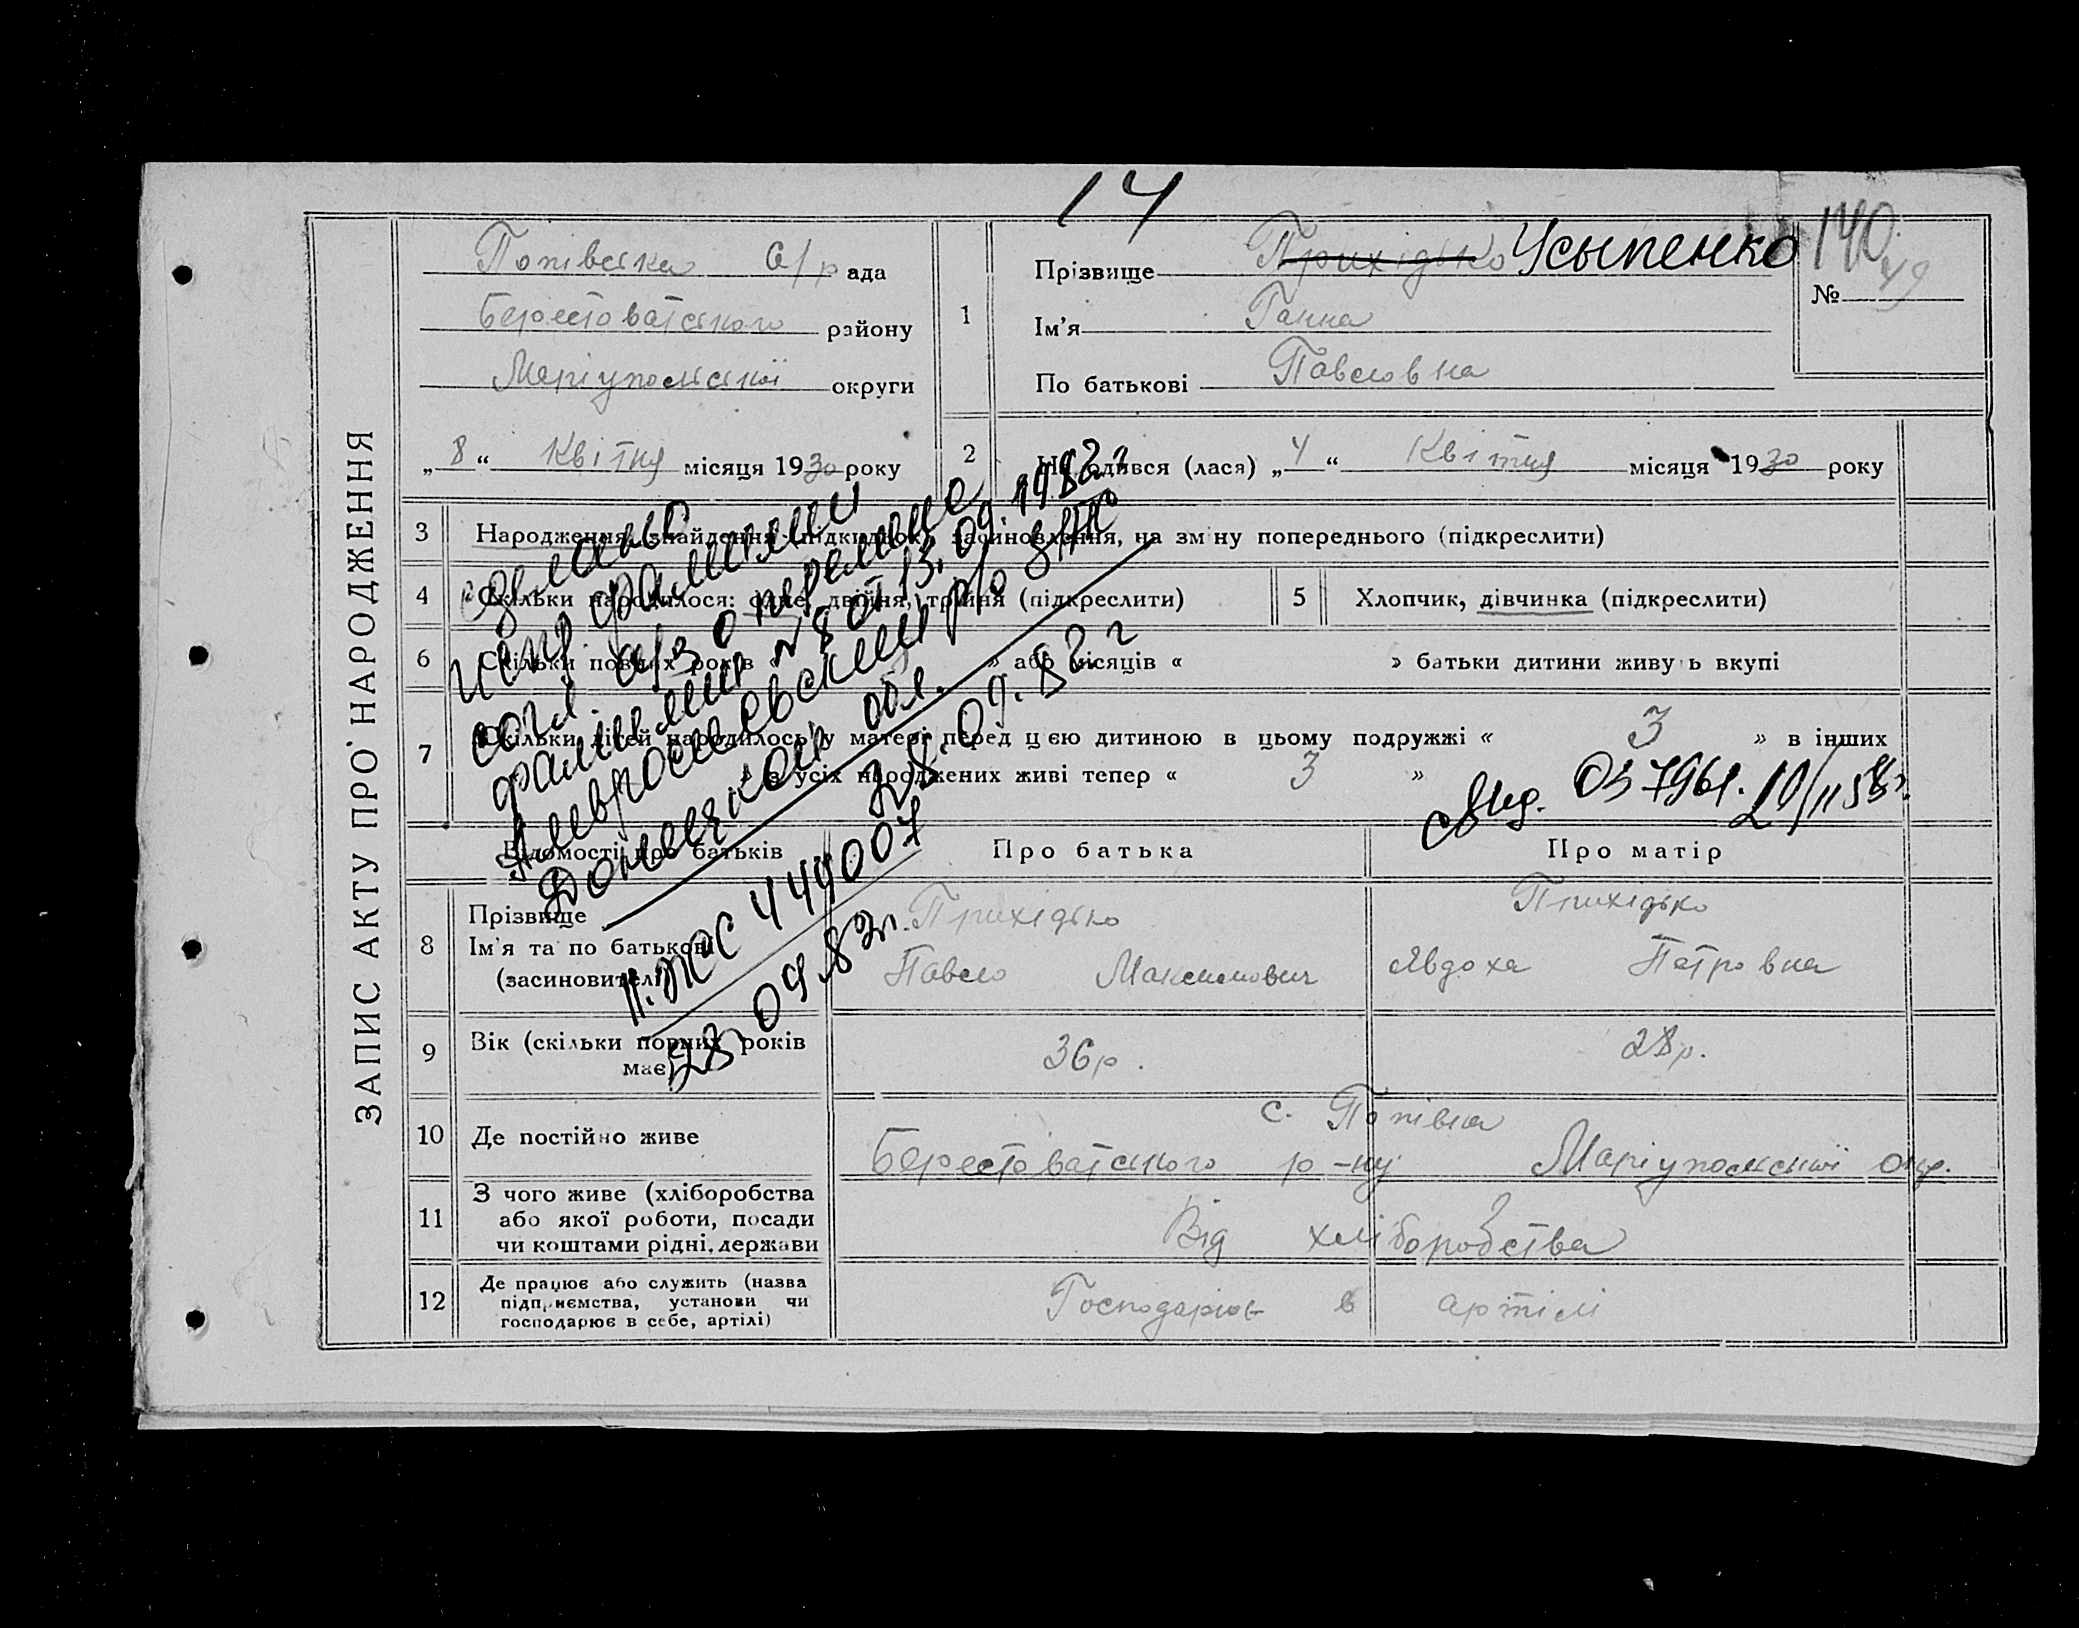 14
ЗАПИС АКТУ ПРО НАРОДЖЕННЯ
Попівська с/рада
Берестоватського району
Маріупольської округи
„8“ Квітня місяця 1930 року
1
Прізвище Прихідько Усыпенко
Ім'я Ганна
По батькові Павловна
140
№ 49
2 Народився (лася) „4“ Квітня місяця 1930 року
3 Народження, знайдення підкидьок, засиновлення, на зміну попереднього (підкреслити)
4 Скільки народилося: одне, двійня, трійня (підкреслити)
5 Хлопчик, дівчинка (підкреслити)
6 Скільки повних років « » або місяців « » батьки дитини живуть вкупі
7 Скільки дітей народилось у матері перед цією дитиною в цьому подружжі « 3 » в інших
» з усіх народжених живі тепер « 3 »
свид. 037961. 10/11 58г.
фамилии
о перемене
фамилии № 8 от 13.09.1982г
р/о ЗАГС
Донецкой обл.
28.09.82г
449007
28 09 82г.
Відомості про батьків
Про батька
Про матір
8
Прізвище
Ім'я та по батькові
(засиновителі)
Прихідько
Павло Максимович
Прихідько
Явдоха Петровна
9 Вік (скільки повних років
має)
36р.
28р.
10 Де постійно живе
с. Попівка
Берестоватського р-ну Маріупольської окр.
11 З чого живе (хліборобства
або якої роботи, посади
чи коштами рідні, держави
Від хліборобства
12 Де працює або служить (назва
підприємства, установи чи
господарює в себе, артілі)
Господарює в артілі